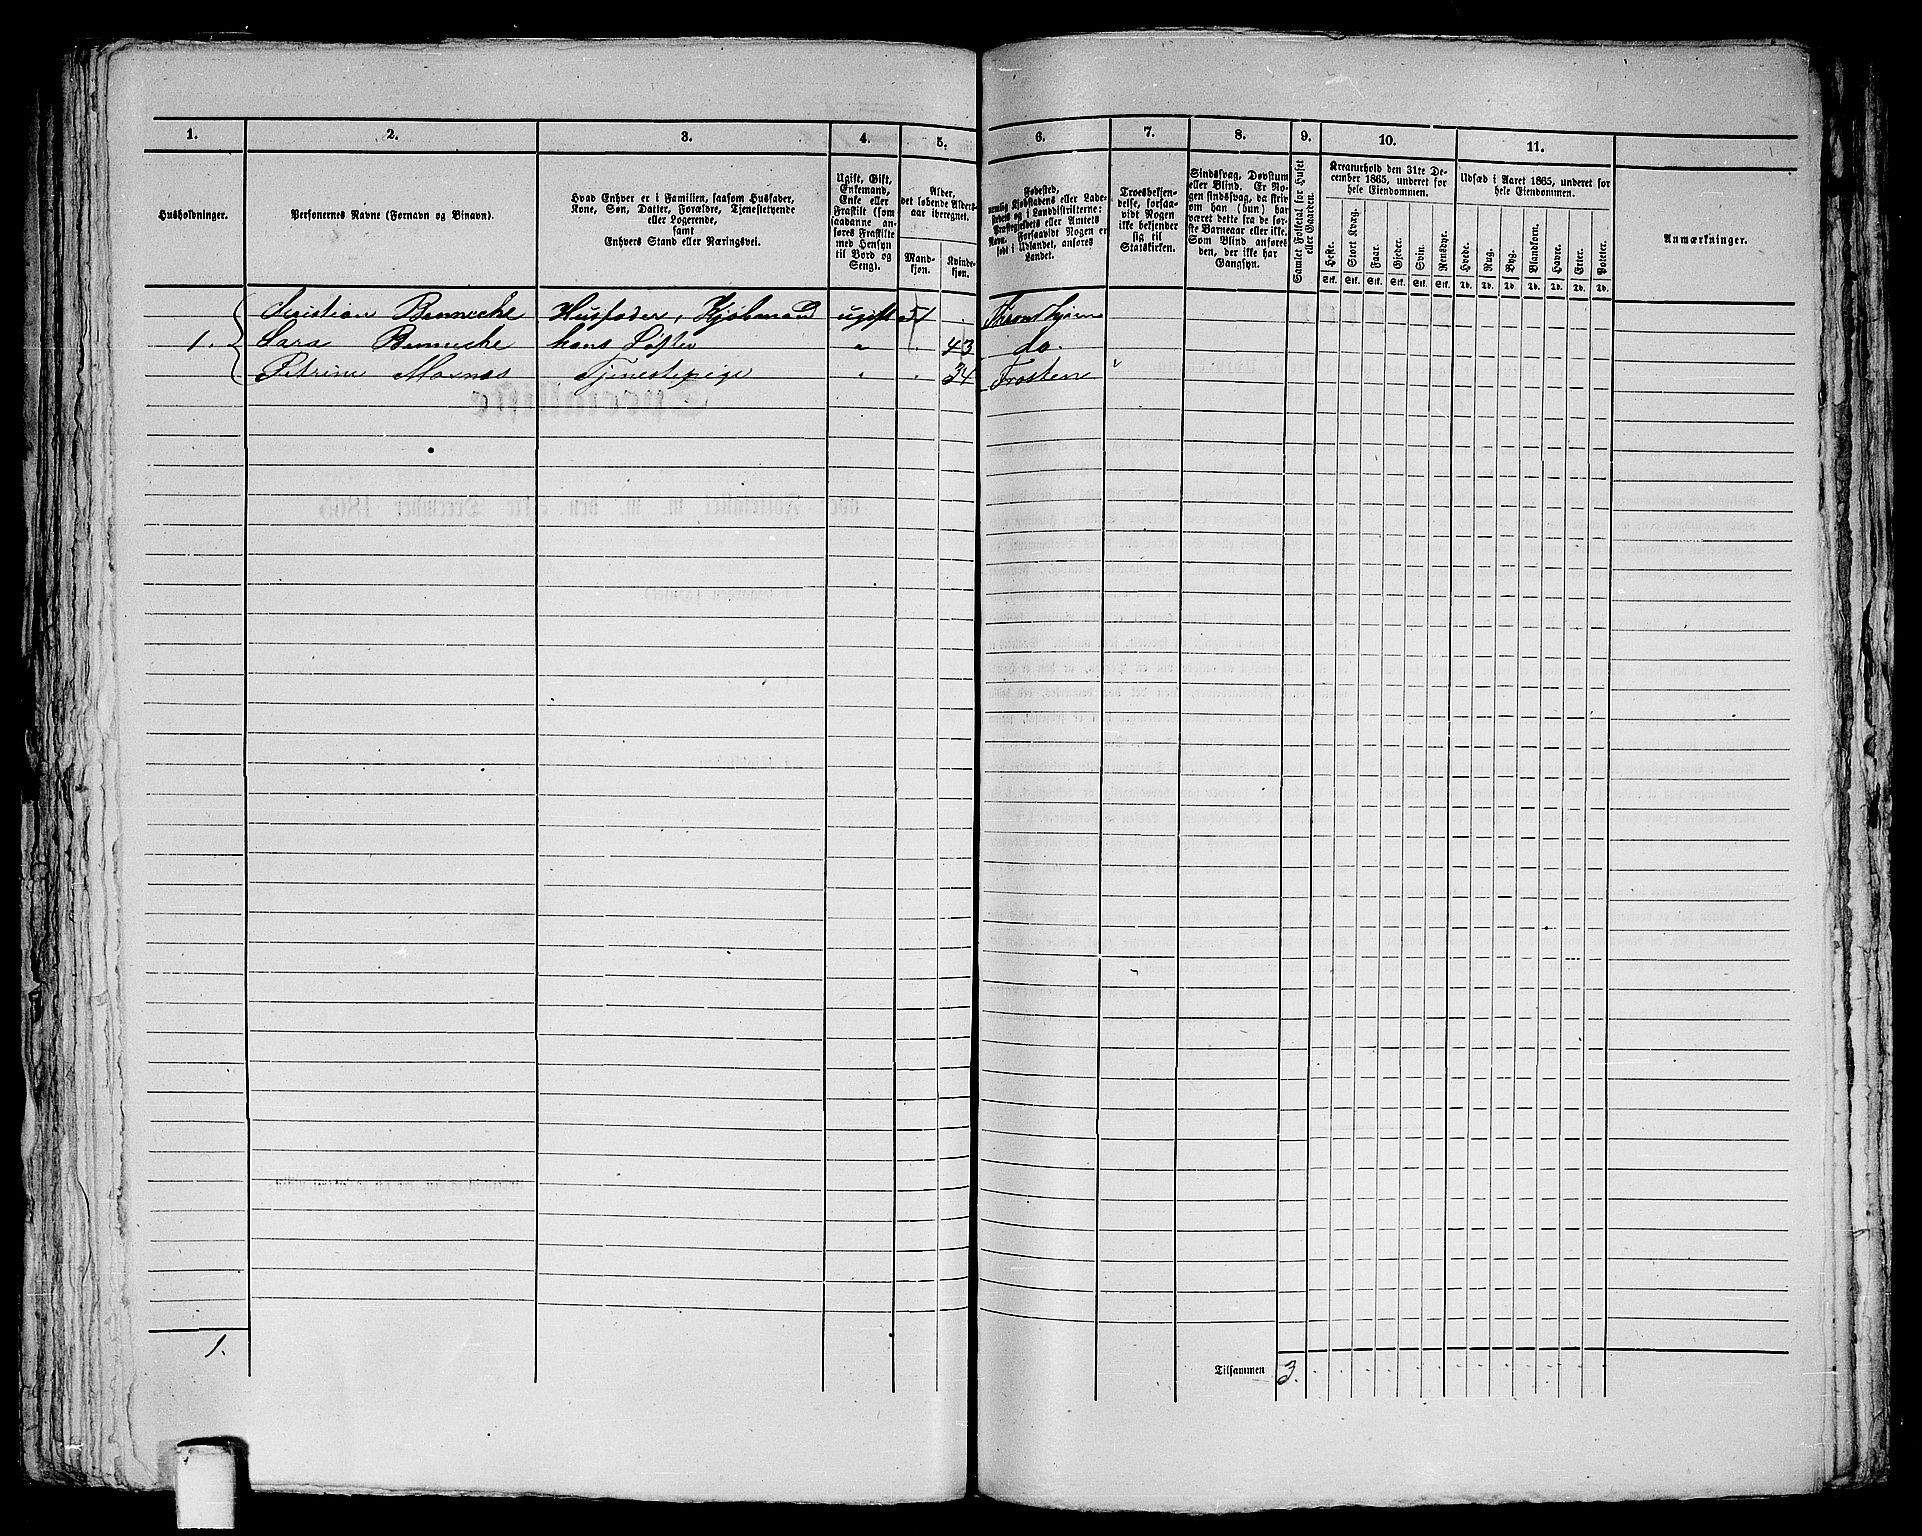 1. 2. 3. 4. 5. 6. 7. 8. 9. 10. 11.
Husholdninger.
Personernes Navne (Fornavn og Binavn).
Hvad Enhver er i Familien, saasom Husfader,
Kone, Søn, Datter, Forældre, Tjenestetyende
eller Logerende,
samt
Enhvers Stand eller Næringsvei.
Ugift, Gift,
Enkemand,
Enke eller
Fraskilt (som
saadanne an-
føres Fraskilte
med Hensyn
til Bord og
Seng).
Alder,
det løbende Alders-
aar iberegnet.
Mand-
kjøn.
Kvinde-
kjøn.
Fødested,
nemlig Kjøbstadens eller Lade-
stedets og i Landdistrikterne:
Præstegjeldets eller Amtets
Navn. Forsaavidt Nogen er
født i Udlandet, anføres
Landet.
Troesbekjen-
delse, forsaa-
vidt Nogen
ikke bekjender
sig til
Statskirken.
Sindssvag, Døvstum
eller Blind. Er No-
gen sindssvag, da skriv
om han (hun) har
været dette fra de før-
ste Barneaar eller ikke.
Som Blind anføres
den, der ikke har
Gangsyn.
Samlet Folketal for Huset
eller Gaarden.
Kreaturhold den 31te De-
cember 1865, underet for
hele Eiendommen.
Heste. Stort Kvæg. Faar. Gjeder. Svin. Rensdyr.
Stk. Stk. Stk. Stk. Stk. Stk.
Udsæd i Aaret 1865, underet for
hele Eiendommen.
Hvede. Rug. Byg. Blandkorn. Havre. Erter. Poteter.
Td. Td. Td. Td. Td. Td. Td.
Anmærkninger.
Christian Benneche Husfader, Kjøbmand ugift 51 . Throndhjem
1. Sara Benneche hans Søster " . 43 do.
Petrine Mosnæs Tjenestepige " . 34 Frosten "
1.
Tilsammen 3.